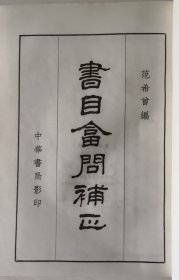 范希曾編
書目答問補正
中華書局影印